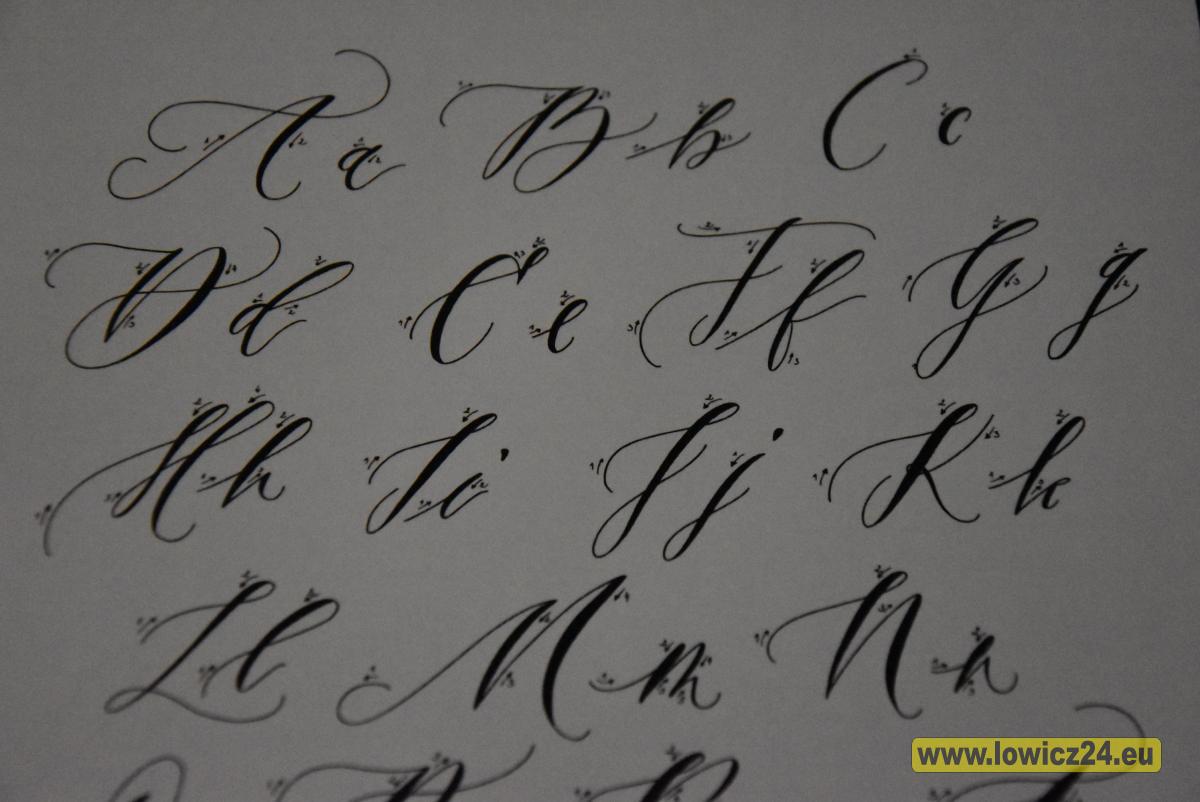 A a B b C c
D d E e F f G g
H h I i J j K k
L l M m N n
www.lowicz24.eu